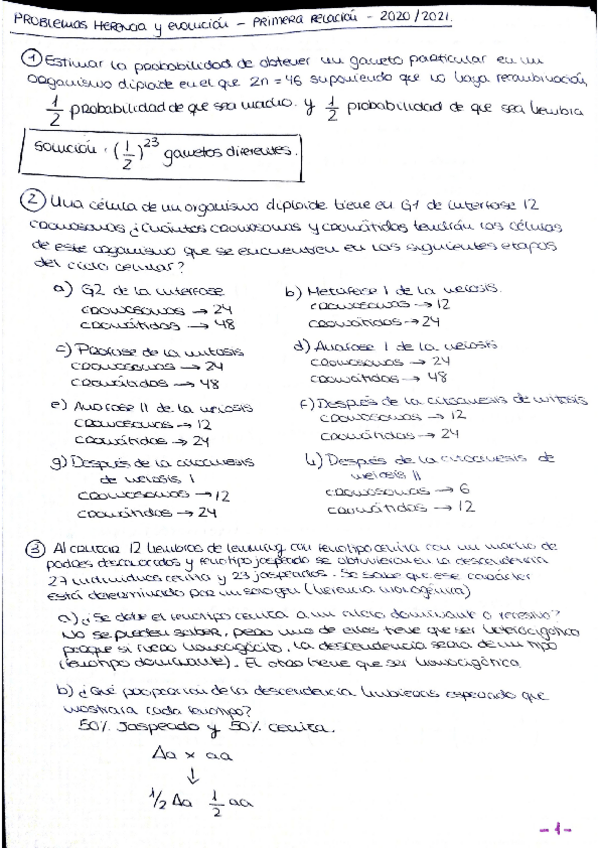 PROBLEMAS HERENCIA y EVOLUCIÓN - PRIMERA RELACIÓN - 2020/2021.
① Estimar la probabilidad de obtener un gameto particular en un
organismo diploide en el que 2n = 46 suponiendo que no haya recombinación,
1/2 probabilidad de que sea macho. y 1/2 probabilidad de que sea hembra
Solución: (1/2)^23 gametos diferentes.
② Una célula de un organismo diploide tiene en G1 de interfase 12
cromosomas ¿Cuántos cromosomas y cromátidas tendrán las células
de este organismo que se encuentren en las siguientes etapas
del ciclo celular?
a) G2 de la interfase
cromosomas → 24
cromátidas → 48
b) Metafase I de la meiosis.
cromosomas → 12
cromátidas → 24
c) Profase de la mitosis
cromosomas → 24
cromátidas → 48
d) Anafase I de la meiosis
cromosomas → 24
cromátidas → 48
e) Anafase II de la meiosis
cromosomas → 12
cromátidas → 24
f) Después de la citocinesis de mitosis
cromosomas → 12
cromátidas → 24
g) Después de la citocinesis
de meiosis I
cromosomas → 12
cromátidas → 24
h) Después de la citocinesis de
meiosis II
cromosomas → 6
cromátidas → 12
③ Al cruzar 12 hembras de lemming con fenotipo ceniza con un macho de
padres desconocidos y fenotipo jaspeado se obtuvieron en la descendencia
27 individuos ceniza y 23 jaspeados. Se sabe que ese carácter
está determinado por un solo gen (herencia monogénica)
a) ¿Se debe el fenotipo ceniza a un alelo dominante o recesivo?
No se puede saber, pero uno de ellos tiene que ser heterocigótico
porque si fuera homocigótico, la descendencia sería de un tipo
(fenotipo dominante). El otro tiene que ser homocigótico
b) ¿Qué proporción de la descendencia hubieras esperado que
mostrara cada fenotipo?
50% Jaspeado y 50% ceniza.
Aa × aa
↓
1/2 Aa 1/2 aa
- 1 -